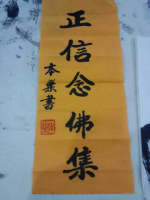 正信念佛集
本業書